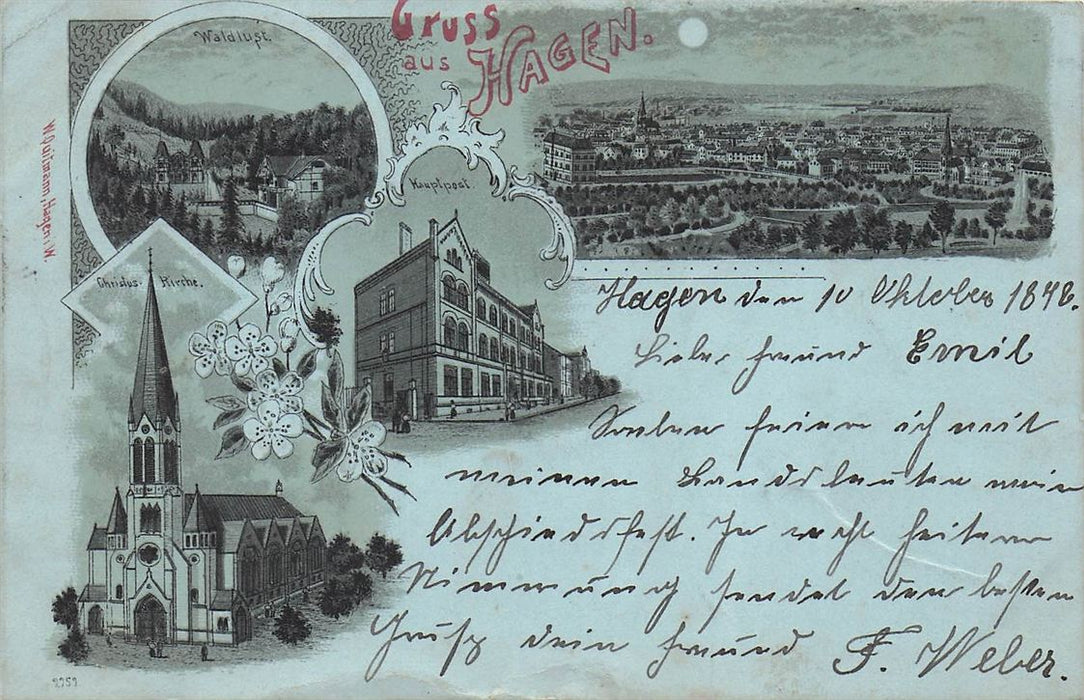 Gruss
aus HAGEN.
Waldlust.
Hauptpost.
Christus-Kirche.
W. Hagen i. W.
Hagen den 10 Oktober 1898.
Lieber Freund Emil
Soeben feiern ich mit
meinen Landsleuten mein
Abschiedsfest. In recht heiterer
Stimmung sendet den besten
Gruß dein Freund F. Weber.
9959